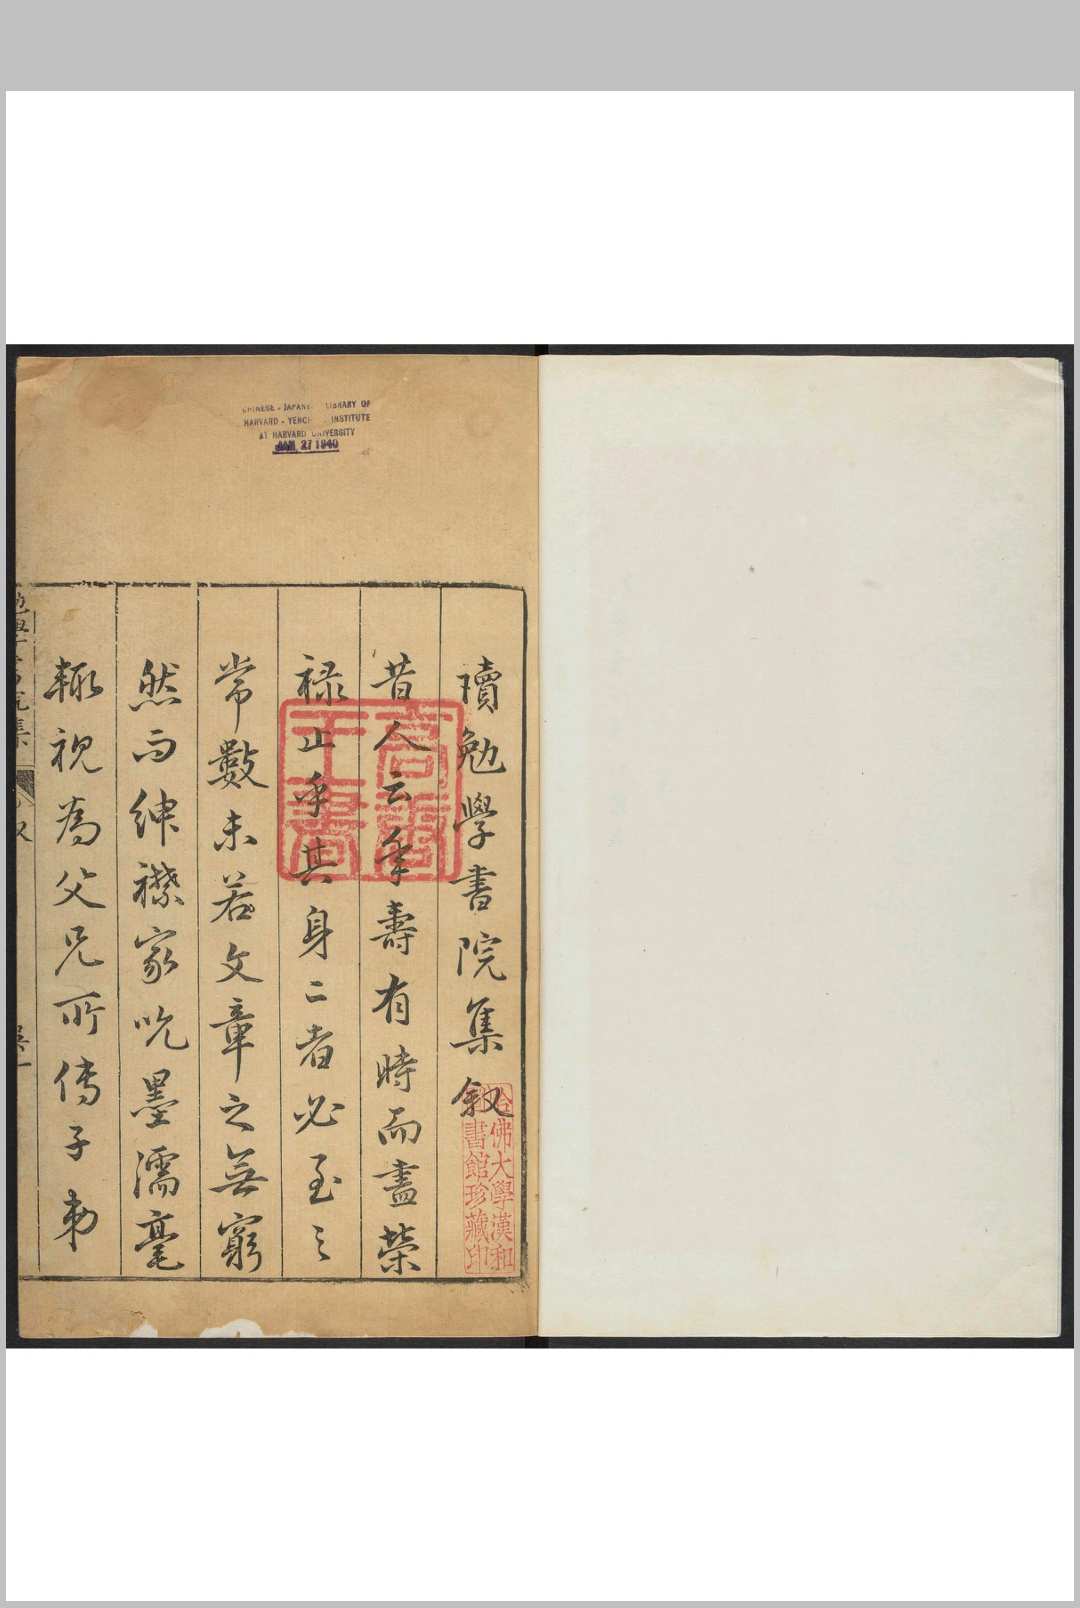 CHINESE - JAPANESE LIBRARY OF
HARVARD - YENCHING INSTITUTE
AT HARVARD UNIVERSITY
JAN 27 1940
讀勉學書院集叙
昔人云年壽有時而盡榮
禄止乎其身二者必至之
常數未若文章之無窮
然而紳襟家吮墨濡毫
輙視為父兄所傳子弟
哈佛大學漢和
圖書館珍藏印